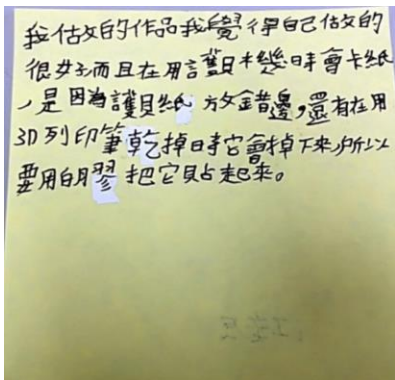 我做的作品我覺得自己做的
很好而且在用護貝機時會卡紙
，是因為護貝紙放錯邊，還有在用
3D列印筆乾掉時它會掉下來，所以
要用白膠把它貼起來。